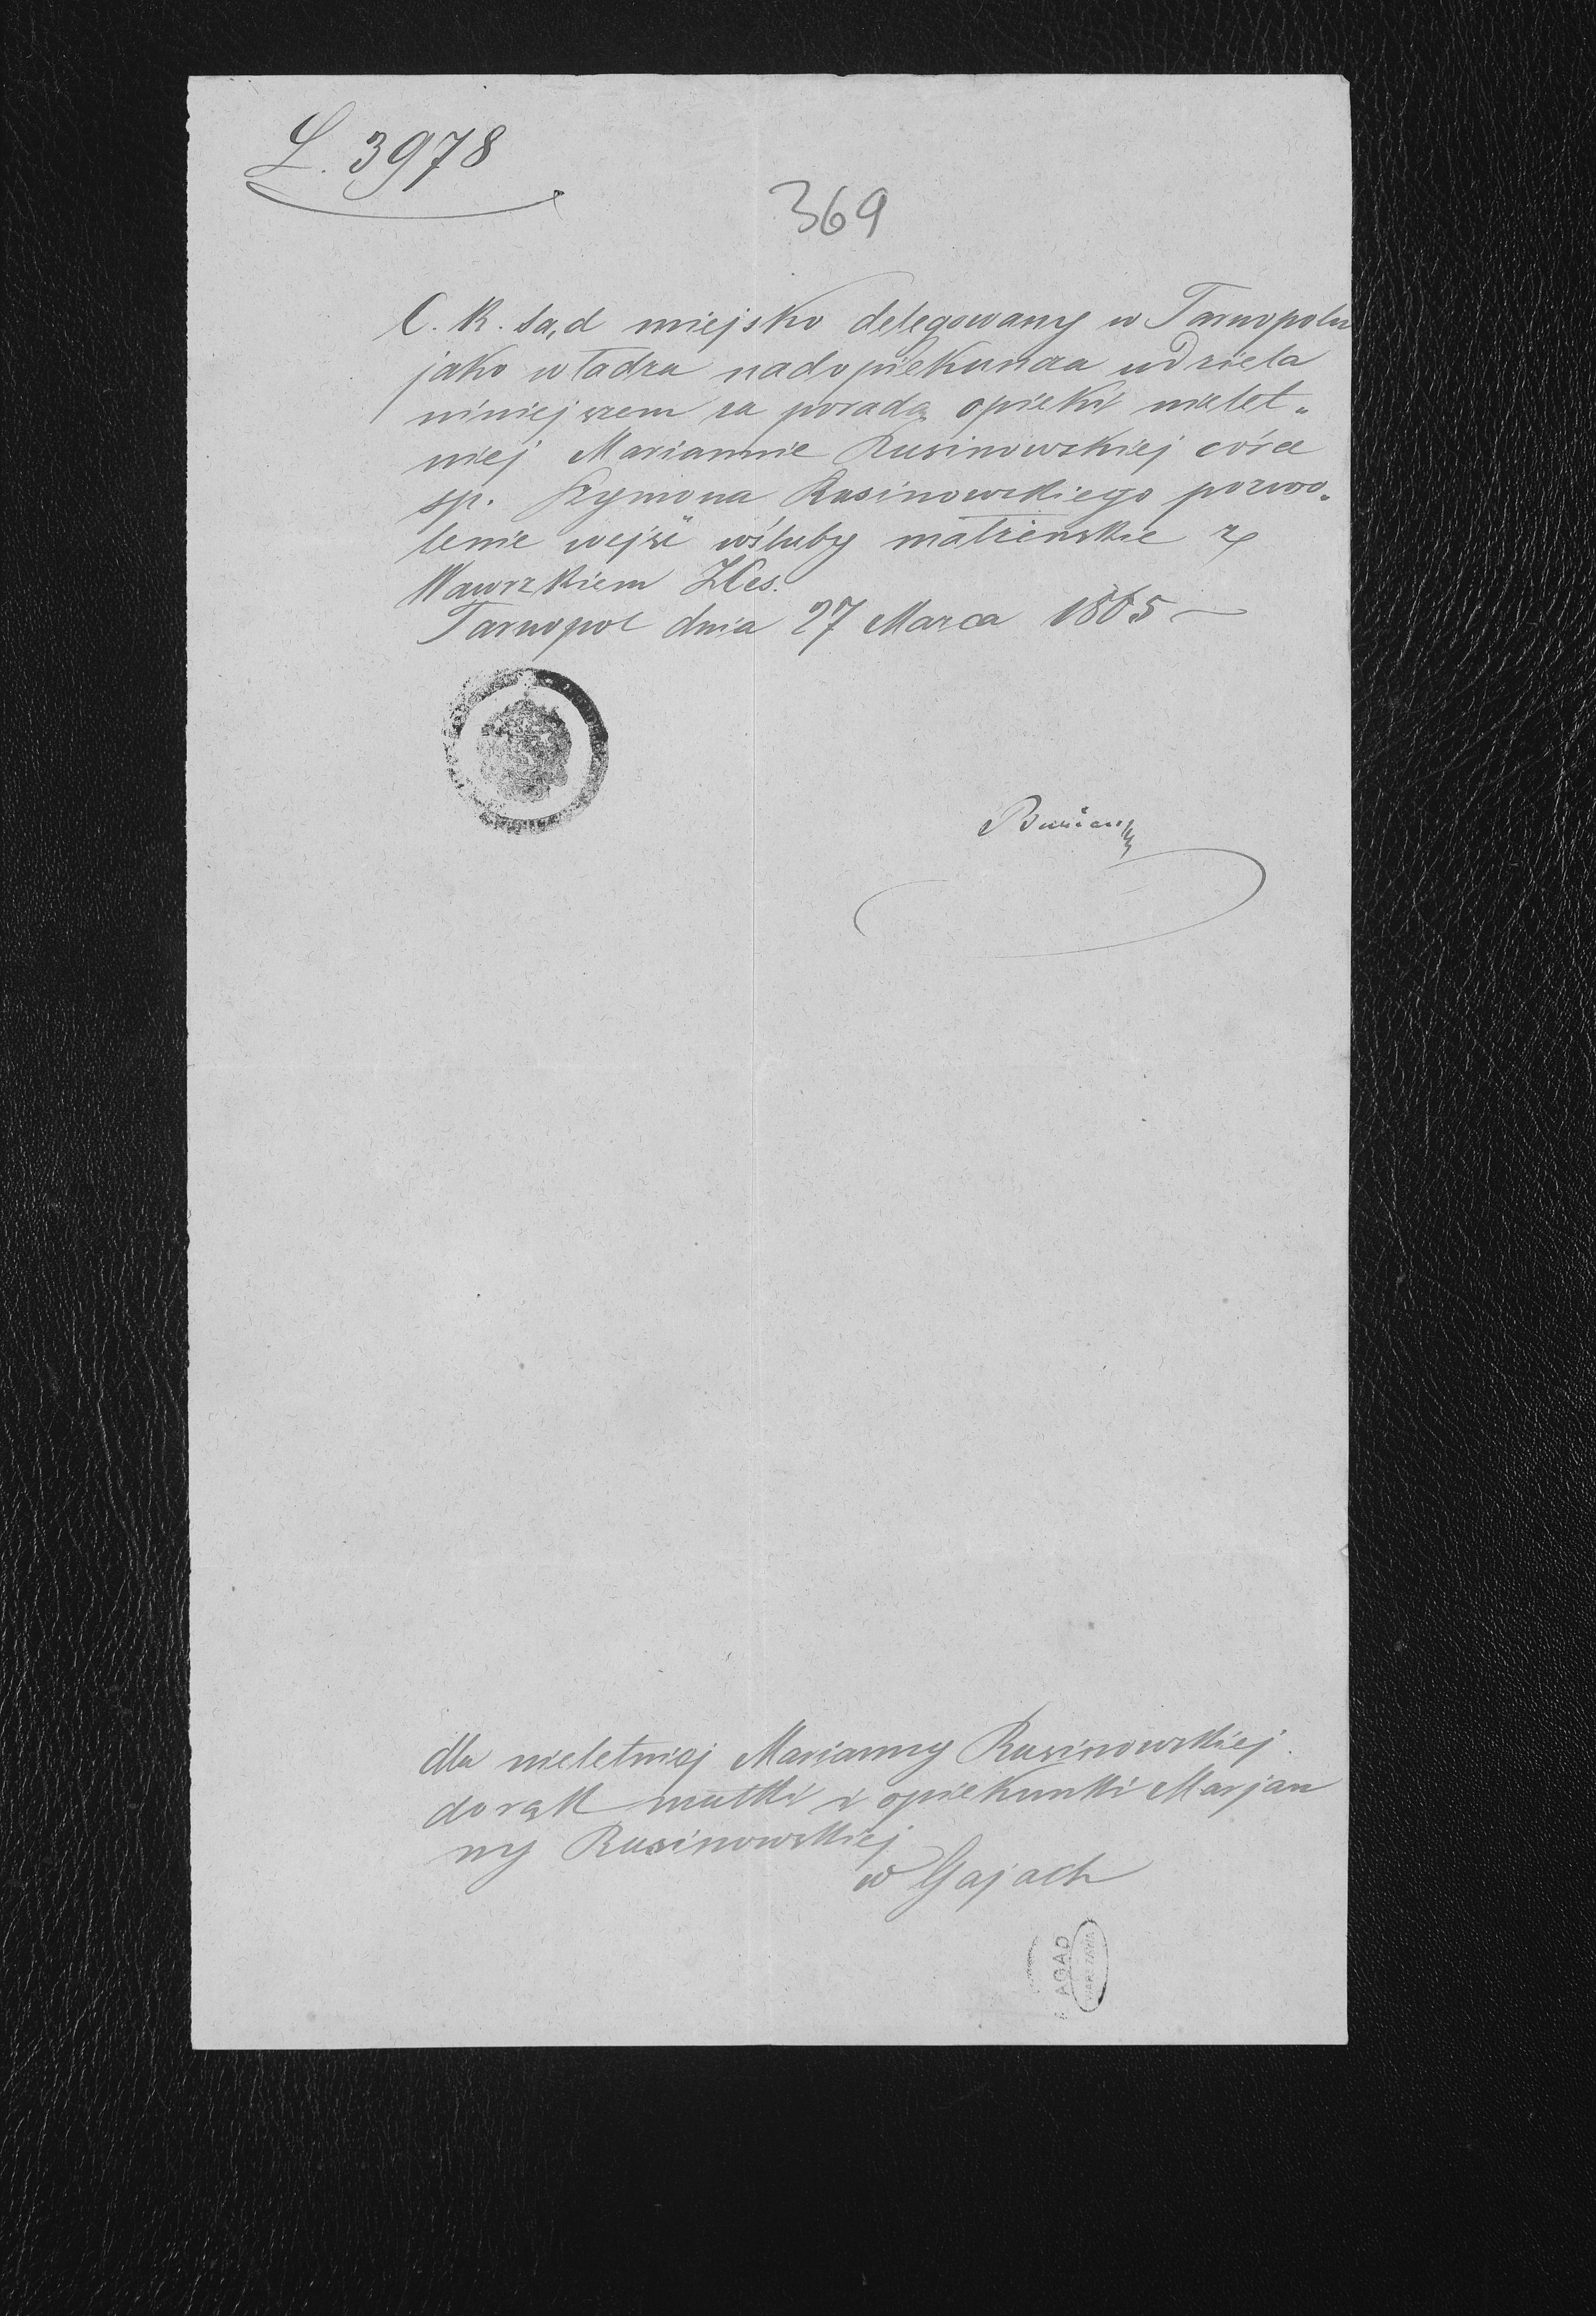 L. 3978
369
C. K. Sąd miejsko delegowany w Tarnopolu
jako władza nadopiekuncza udziela
niniejszem za poradą opieki nielet„
niej Mariannie Rusinowskiej córce
sp. Szymona Rusinowskiego pozwo„
lenie wejść wśluby małżenskie z
Wawrzkiem
Tarnopol dnia 27 Marca 1865
dla nieletniej Marianny Rusinowskiej
do rąk matki i opiekunki Marjan
ny Rusinowskiej
w Gajach
AGAD
WARSZAWA